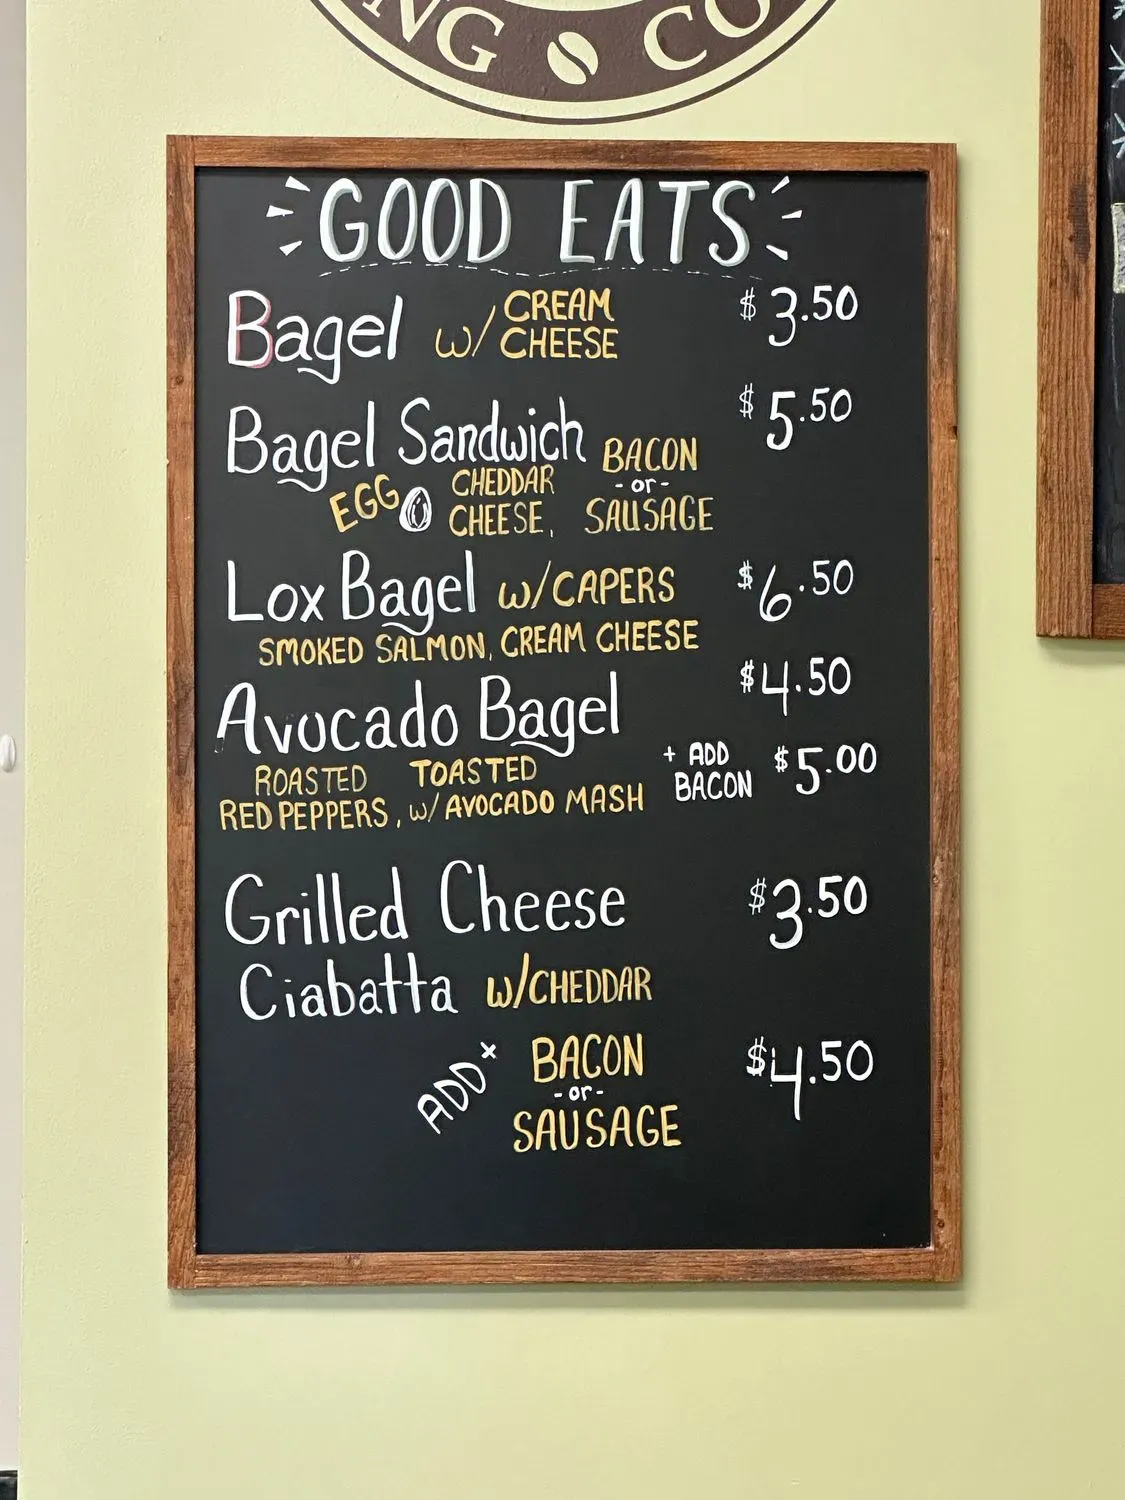 NG CO
GOOD EATS
Bagel w/ CREAM CHEESE $3.50
Bagel Sandwich $5.50
EGG CHEDDAR CHEESE, BACON -or- SAUSAGE
Lox Bagel w/CAPERS $6.50
SMOKED SALMON, CREAM CHEESE
Avocado Bagel $4.50
ROASTED RED PEPPERS, TOASTED w/ AVOCADO MASH
+ ADD BACON $5.00
Grilled Cheese $3.50
Ciabatta w/CHEDDAR
ADD+ BACON -or- SAUSAGE $4.50